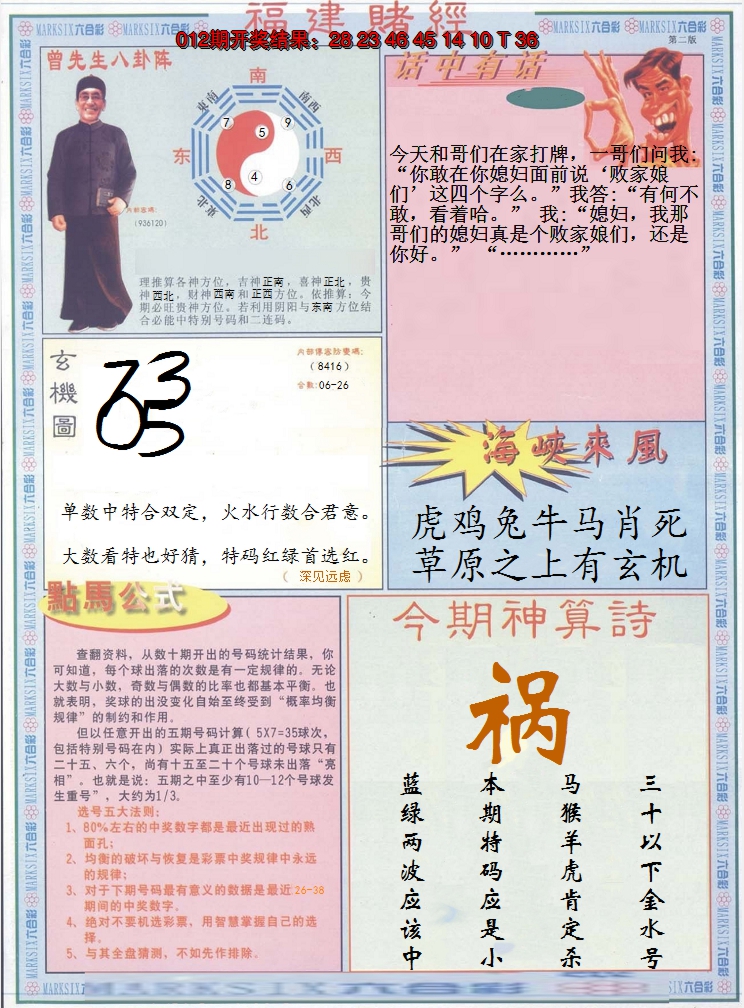 福建賭經
012期开奖结果：28 23 46 45 14 10 T 36
MARKSIX六合彩
第二版
曾先生八卦阵
南
东南
西南
7
9
5
东
西
4
8
6
东北
西北
北
内部密碼:
(936120)
理推算各神方位，吉神正南，喜神正北，贵
神西北，财神西南和正西方位。依推算：今
期必旺贵神方位。若利用阴阳与东南方位结
合必能中特别号码和二连码。
话中有话
今天和哥们在家打牌，一哥们问我:
“你敢在你媳妇面前说‘败家娘
们’这四个字么。”我答:“有何不
敢，看着哈。” 我:“媳妇，我那
哥们的媳妇真是个败家娘们，还是
你好。” “…………”
玄機圖
73
05
(8416)
合數:06-26
单数中特合双定，火水行数合君意。
大数看特也好猜，特码红绿首选红。
（ 深见远虑 ）
海峽來風
虎鸡兔牛马肖死
草原之上有玄机
點馬公式
查翻资料，从数十期开出的号码统计结果，你
可知道，每个球出落的次数是有一定规律的。无论
大数与小数，奇数与偶数的比率也都基本平衡。也
就表明，奖球的出没变化自始至终受到“概率均衡
规律”的制约和作用。
但以任意开出的五期号码计算( 5X7=35球次，
包括特别号码在内)实际上真正出落过的号球只有
二十五、六个，尚有十五至二十个号球未出落“亮
相”。也就是说：五期之中至少有10—12个号球发
生重号”，大约为1/3。
选号五大法则:
1、80%左右的中奖数字都是最近出现过的熟
面孔;
2、均衡的破坏与恢复是彩票中奖规律中永远
的规律;
3、对于下期号码最有意义的数据是最近26-38
期间的中奖数字。
4、绝对不要机选彩票，用智慧掌握自己的选
择。
5、与其全盘猜测，不如先作排除。
今期神算詩
祸
三十以下金水号
马猴羊虎肯定杀
本期特码应是小
蓝绿两波应该中